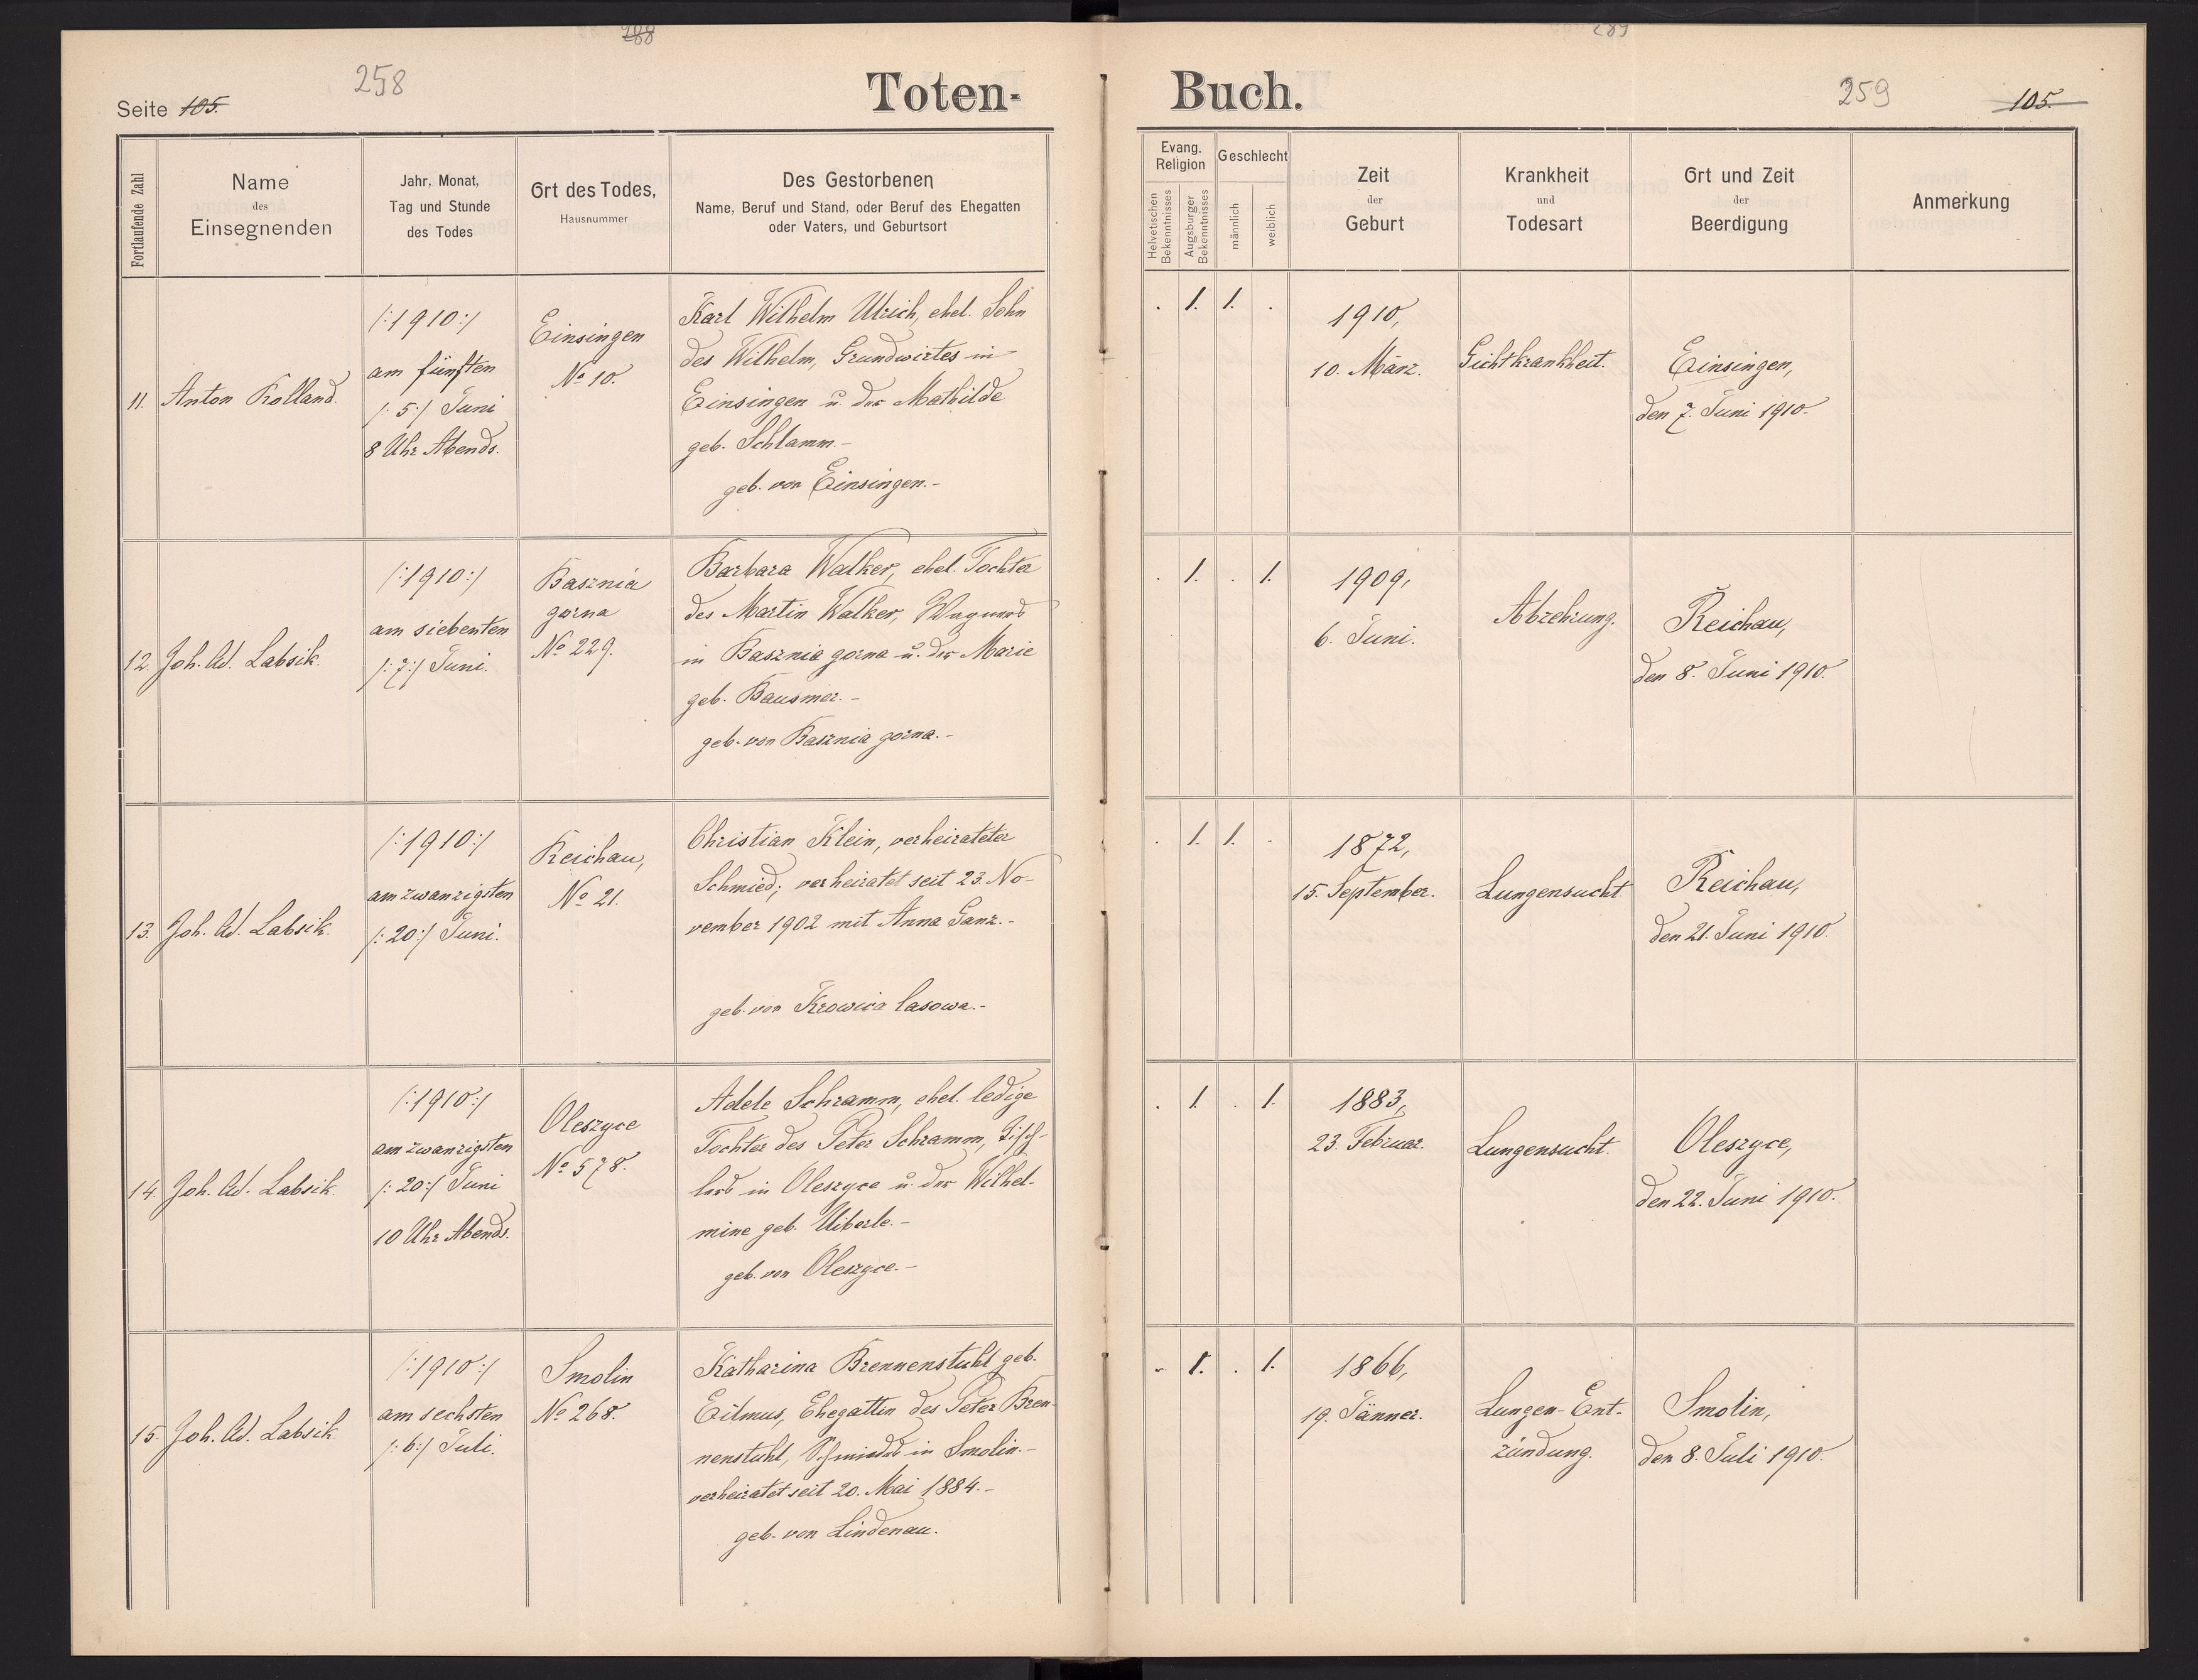 288
289
258
259
Seite 105.
Toten-
Buch.
105.
Fortlaufende Zahl
Name
des
Einsegnenden
Jahr, Monat,
Tag und Stunde
des Todes
Ort des Todes,
Hausnummer
Des Gestorbenen
Name, Beruf und Stand, oder Beruf des Ehegatten
oder Vaters, und Geburtsort
Evang.
Religion
Helvetischen
Bekenntnisses
Augsburger
Bekenntnisses
Geschlecht
männlich
weiblich
Zeit
der
Geburt
Krankheit
und
Todesart
Ort und Zeit
der
Beerdigung
Anmerkung
11.
Anton Rolland.
/:1910:/
am fünften
/:5:/ Juni
8 Uhr Abends.
Einsingen
No 10.
Karl Wilhelm Ulrich, ehel. Sohn
des Wilhelm, Grundwirtes in
Einsingen u. der Mathilde
geb. Schlamm.-
geb. von Einsingen.-
. 1. 1. .
1910,
10. März.
Gichtkrankheit.
Einsingen,
den 7. Juni 1910.
12.
Joh. Ad. Labsik.
/:1910:/
am siebenten
/:7:/ Juni.
Basznia
gorna
No 229.
Barbara Walker, ehel. Tochter
des Martin Walker, Wagners
in Basznia gorna u. der Marie
geb. Bausmer.-
geb. von Basznia gorna.-
. 1. . 1.
1909,
6. Juni.
Abzehrung.
Reichau,
den 8. Juni 1910.
13.
Joh. Ad. Labsik.
/:1910:/
am zwanzigsten
/:20:/ Juni.
Reichau,
No 21.
Christian Klein, verheirateter
Schmied; verheiratet seit 23. No-
vember 1902 mit Anna Ganz.-
geb. von Krowica lasowa.-
. 1. 1. .
1872,
15. September.
Lungensucht
Reichau,
den 21. Juni 1910.
14.
Joh. Ad. Labsik.
/:1910:/
am zwanzigsten
/:20:/ Juni
10 Uhr Abends.
Oleszyce
No 578.
Adele Schramm, ehel. ledige
Tochter des Peter Schramm, Tisch-
lers in Oleszyce u. der Wilhel-
mine geb. Uiberle.-
geb. von Oleszyce.-
. 1. . 1.
1883,
23. Februar.
Lungensucht.
Oleszyce,
den 22. Juni 1910.
15.
Joh. Ad. Labsik
/:1910:/
am sechsten
/:6:/ Juli.
Smolin
No 268.
Katharina Brennenstuhl geb.
Eilmus, Ehegattin des Peter Bren-
nenstuhl, Schmiedes in Smolin.-
verheiratet seit 20. Mai 1884.-
geb. von Lindenau.
. 1. . 1.
1866,
19. Jänner.
Lungen-Ent-
zündung.
Smolin,
den 8. Juli 1910.